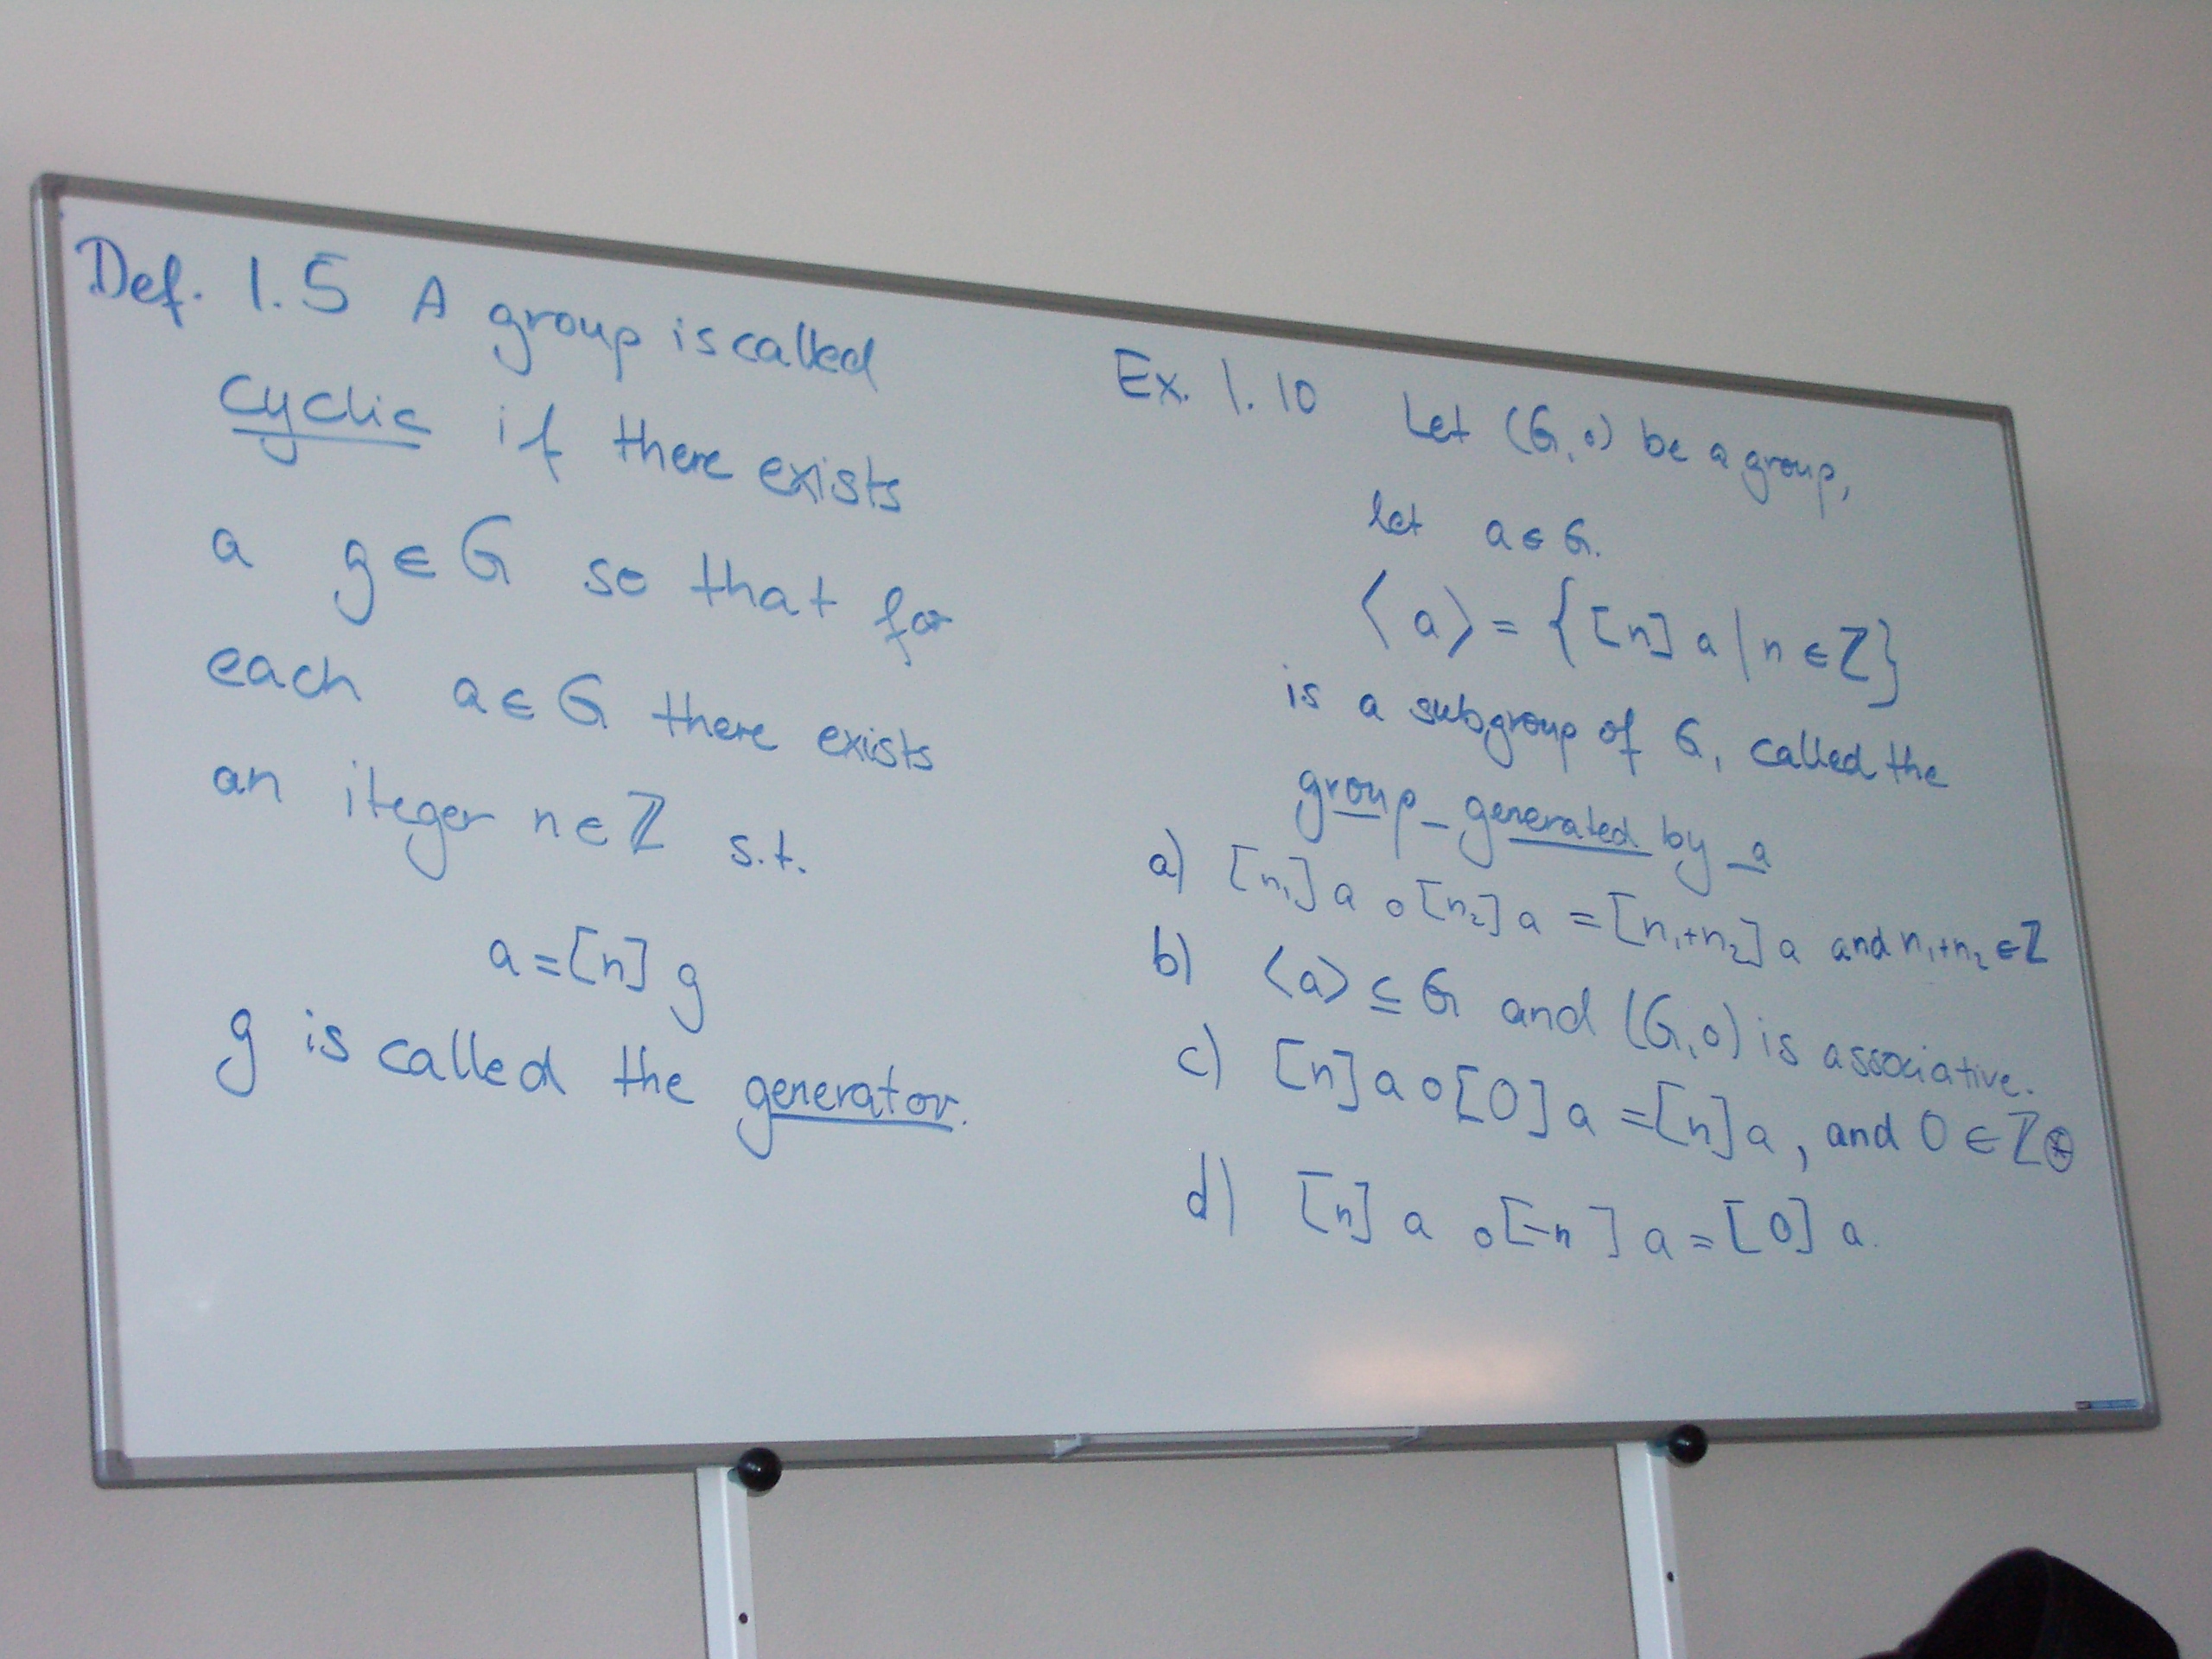 Def. 1.5 A group is called
cyclic if there exists
a g ∈ G so that for
each a ∈ G there exists
an iteger n ∈ ℤ s.t.
a = [n] g
g is called the generator.
Ex. 1.10 Let (G, ∘) be a group,
let a ∈ G.
⟨a⟩ = {[n] a | n ∈ ℤ}
is a subgroup of G, called the
group generated by a
a) [n₁] a ∘ [n₂] a = [n₁+n₂] a and n₁+n₂ ∈ ℤ
b) ⟨a⟩ ⊆ G and (G, ∘) is associative.
c) [n] a ∘ [0] a = [n] a, and 0 ∈ ℤ
d) [n] a ∘ [-n] a = [0] a.